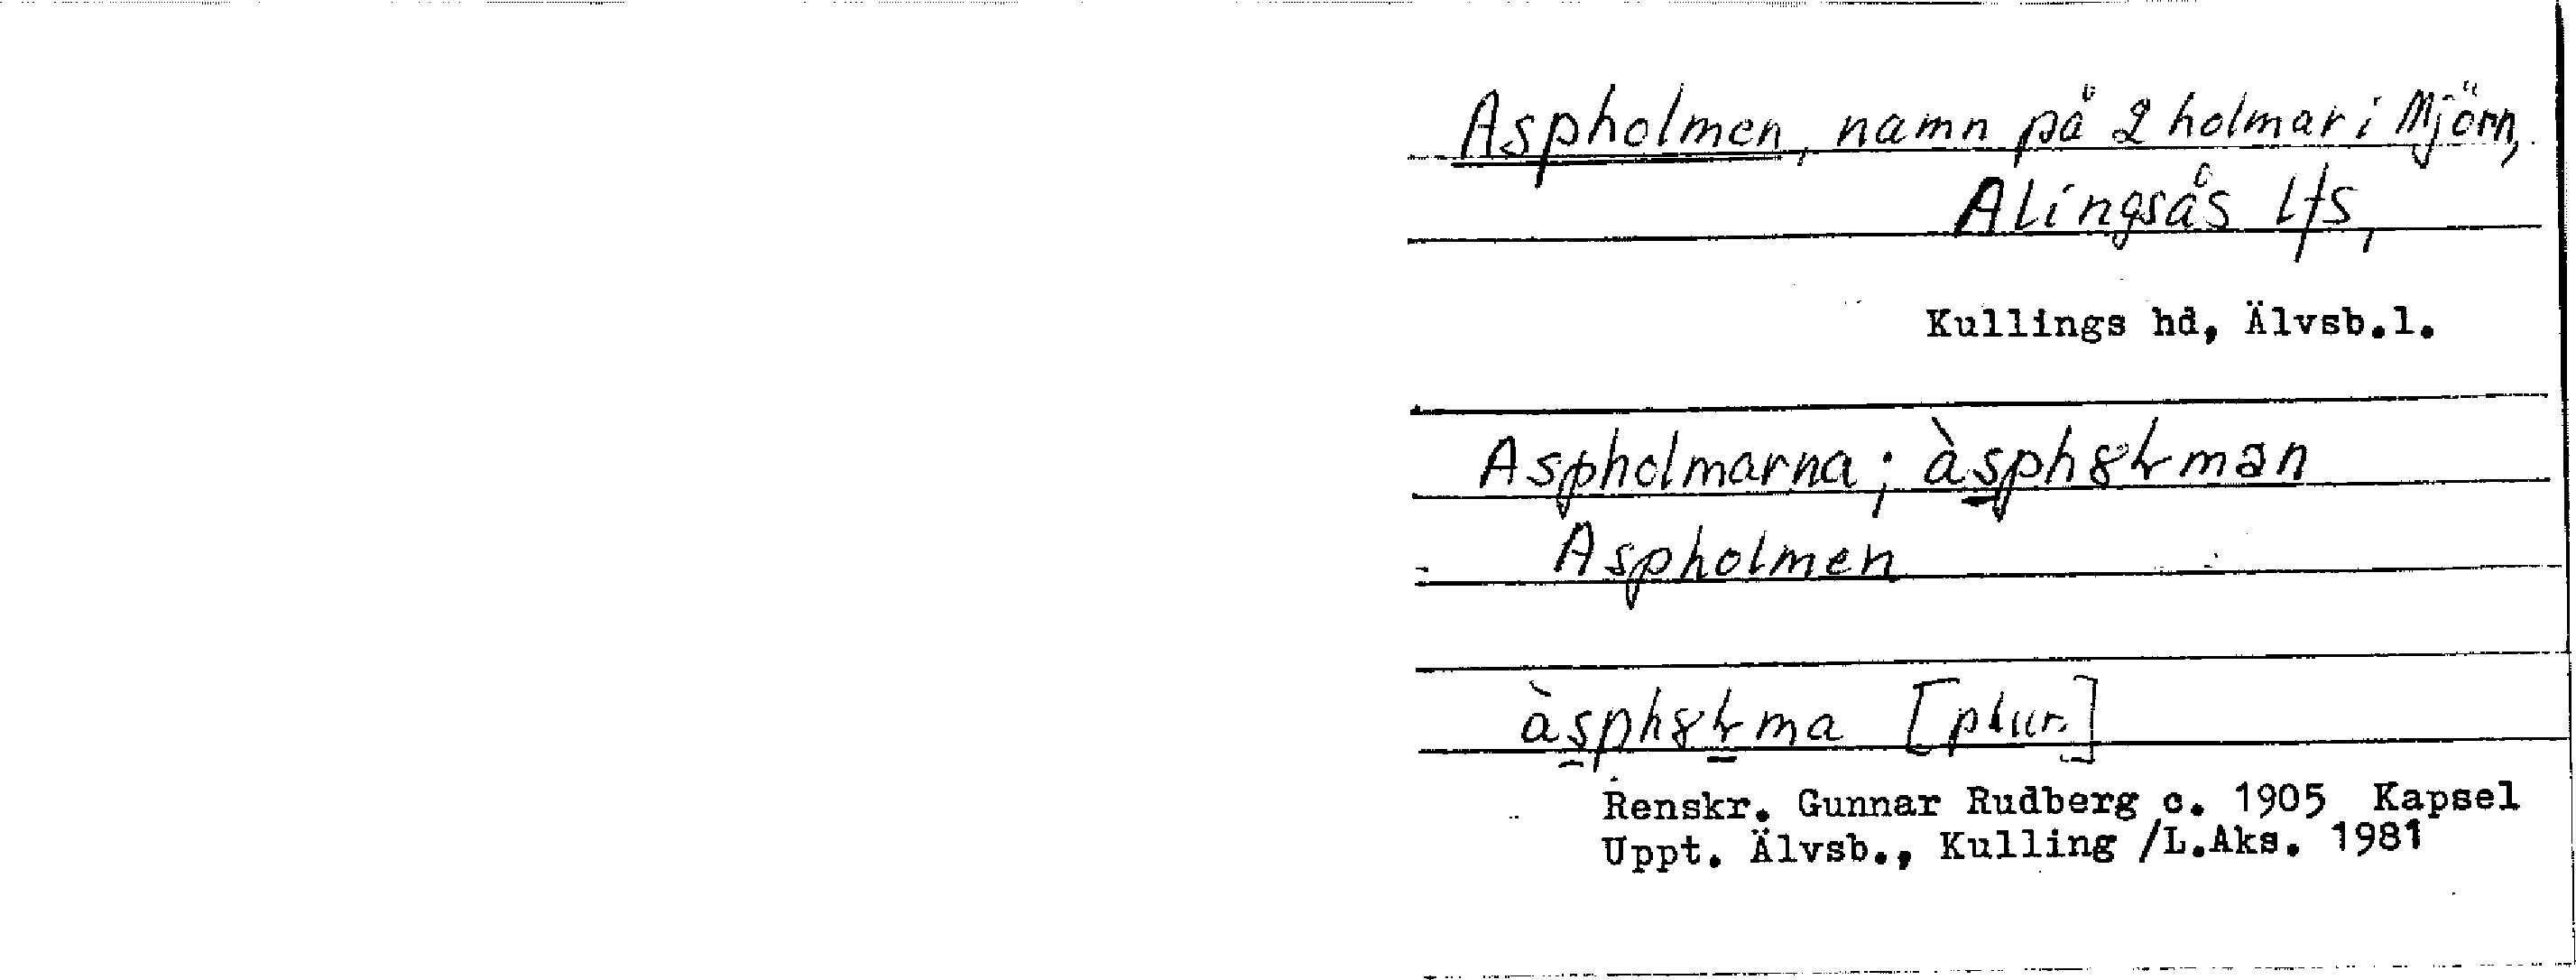 Aspholmen, namn på 2 holmar i Mjörn,
Alingsås lfs,
Kullings hd, Älvsb.l.
Aspholmarna; àsph8ɫmən
Aspholmen
àsph8ɫma [plur.]
Renskr. Gunnar Rudberg c. 1905 Kapsel
Uppt. Älvsb., Kulling /L.Aks. 1981